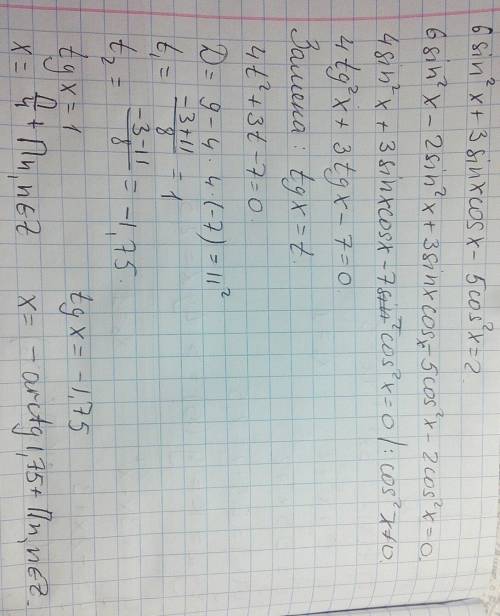 6sin²x+3sinxcosx-5cos²x=2.
6sin²x-2sin²x+3sinxcosx-5cos²x-2cos²x=0.
4sin²x+3sinxcosx-7cos²x=0 |:cos²x≠0.
4tg²x+3tgx-7=0.
Замена: tgx=t.
4t²+3t-7=0.
D=9-4·4·(-7)=11²
t₁=(-3+11)/8=1
t₂=(-3-11)/8=-1,75.
tgx=1 tgx=-1,75
x=π/4+πn,n∈Z x=-arctg1,75+πn,n∈Z.